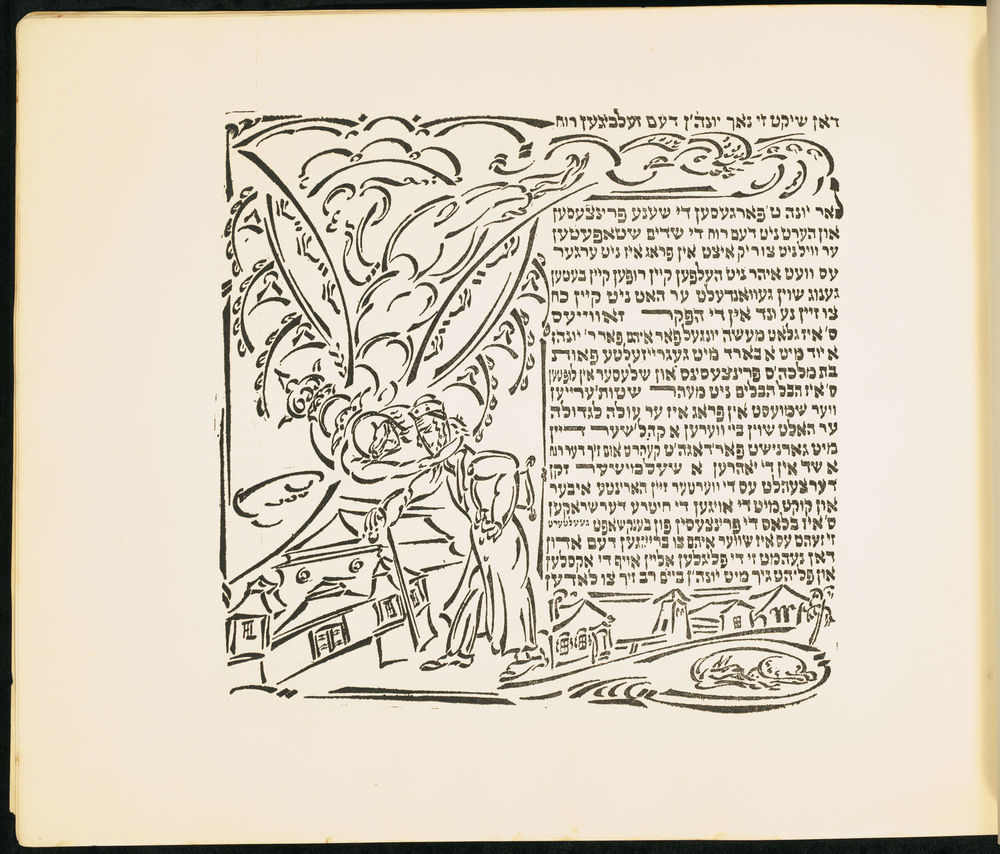 דאן שיקט זי נאך יונה'ן דעם זעלבצען רוח
נאר יונה ט'פארגעסען די שענע פרינצעסען
און הערט ניט דעם רוח די שדים שטאפעטען
ער וויל ניט צוריק איצט אין פראג איז ניט ערגער
עס וועט איהר ניט העלפען קיין רופען קיין בעטען
גענוג שוין געוואנדעלט ער האט ניט קיין כח
צו זיין נע ונד אין די הפקר זאווייעס
ס'איז גלאט מעשה יונגעל פאר איהם פאר ר' יונה'ן
א יוד מיט א בארד מיט געגרייזעלטע פאות
בת מלכה'ס פרינצעסינס און שלעסער אין לופטען
ס'איז הבל הבלים ניט מעהר שטות'ערייען
ווער שמועסט אין פראג איז ער עולה לגדולה
ער האלט שוין ביי ווערען א קהל'שער דיין
מיט גארנישט פאר'דאגה'ט קעהרט אום זיך דער רוח
א שד אין די יאהרען א שעלמישער זקן
דערצעהלט עס די ווערטער זיין הארינטע איבער
און קוקט מיט די אויגען די חיטרע דערשראקען
ס'איז בלאס די פרינצעסין פון בענקשאפט געעלטערט
זי זעהט עס איז שווער איהם צו ברייינגען דעם
דאן נעהמט זי די פליגלען אליין אויף די אקסלען
און פליהט גיך מיט יונה'ן ביים רב זיך צו לאדען